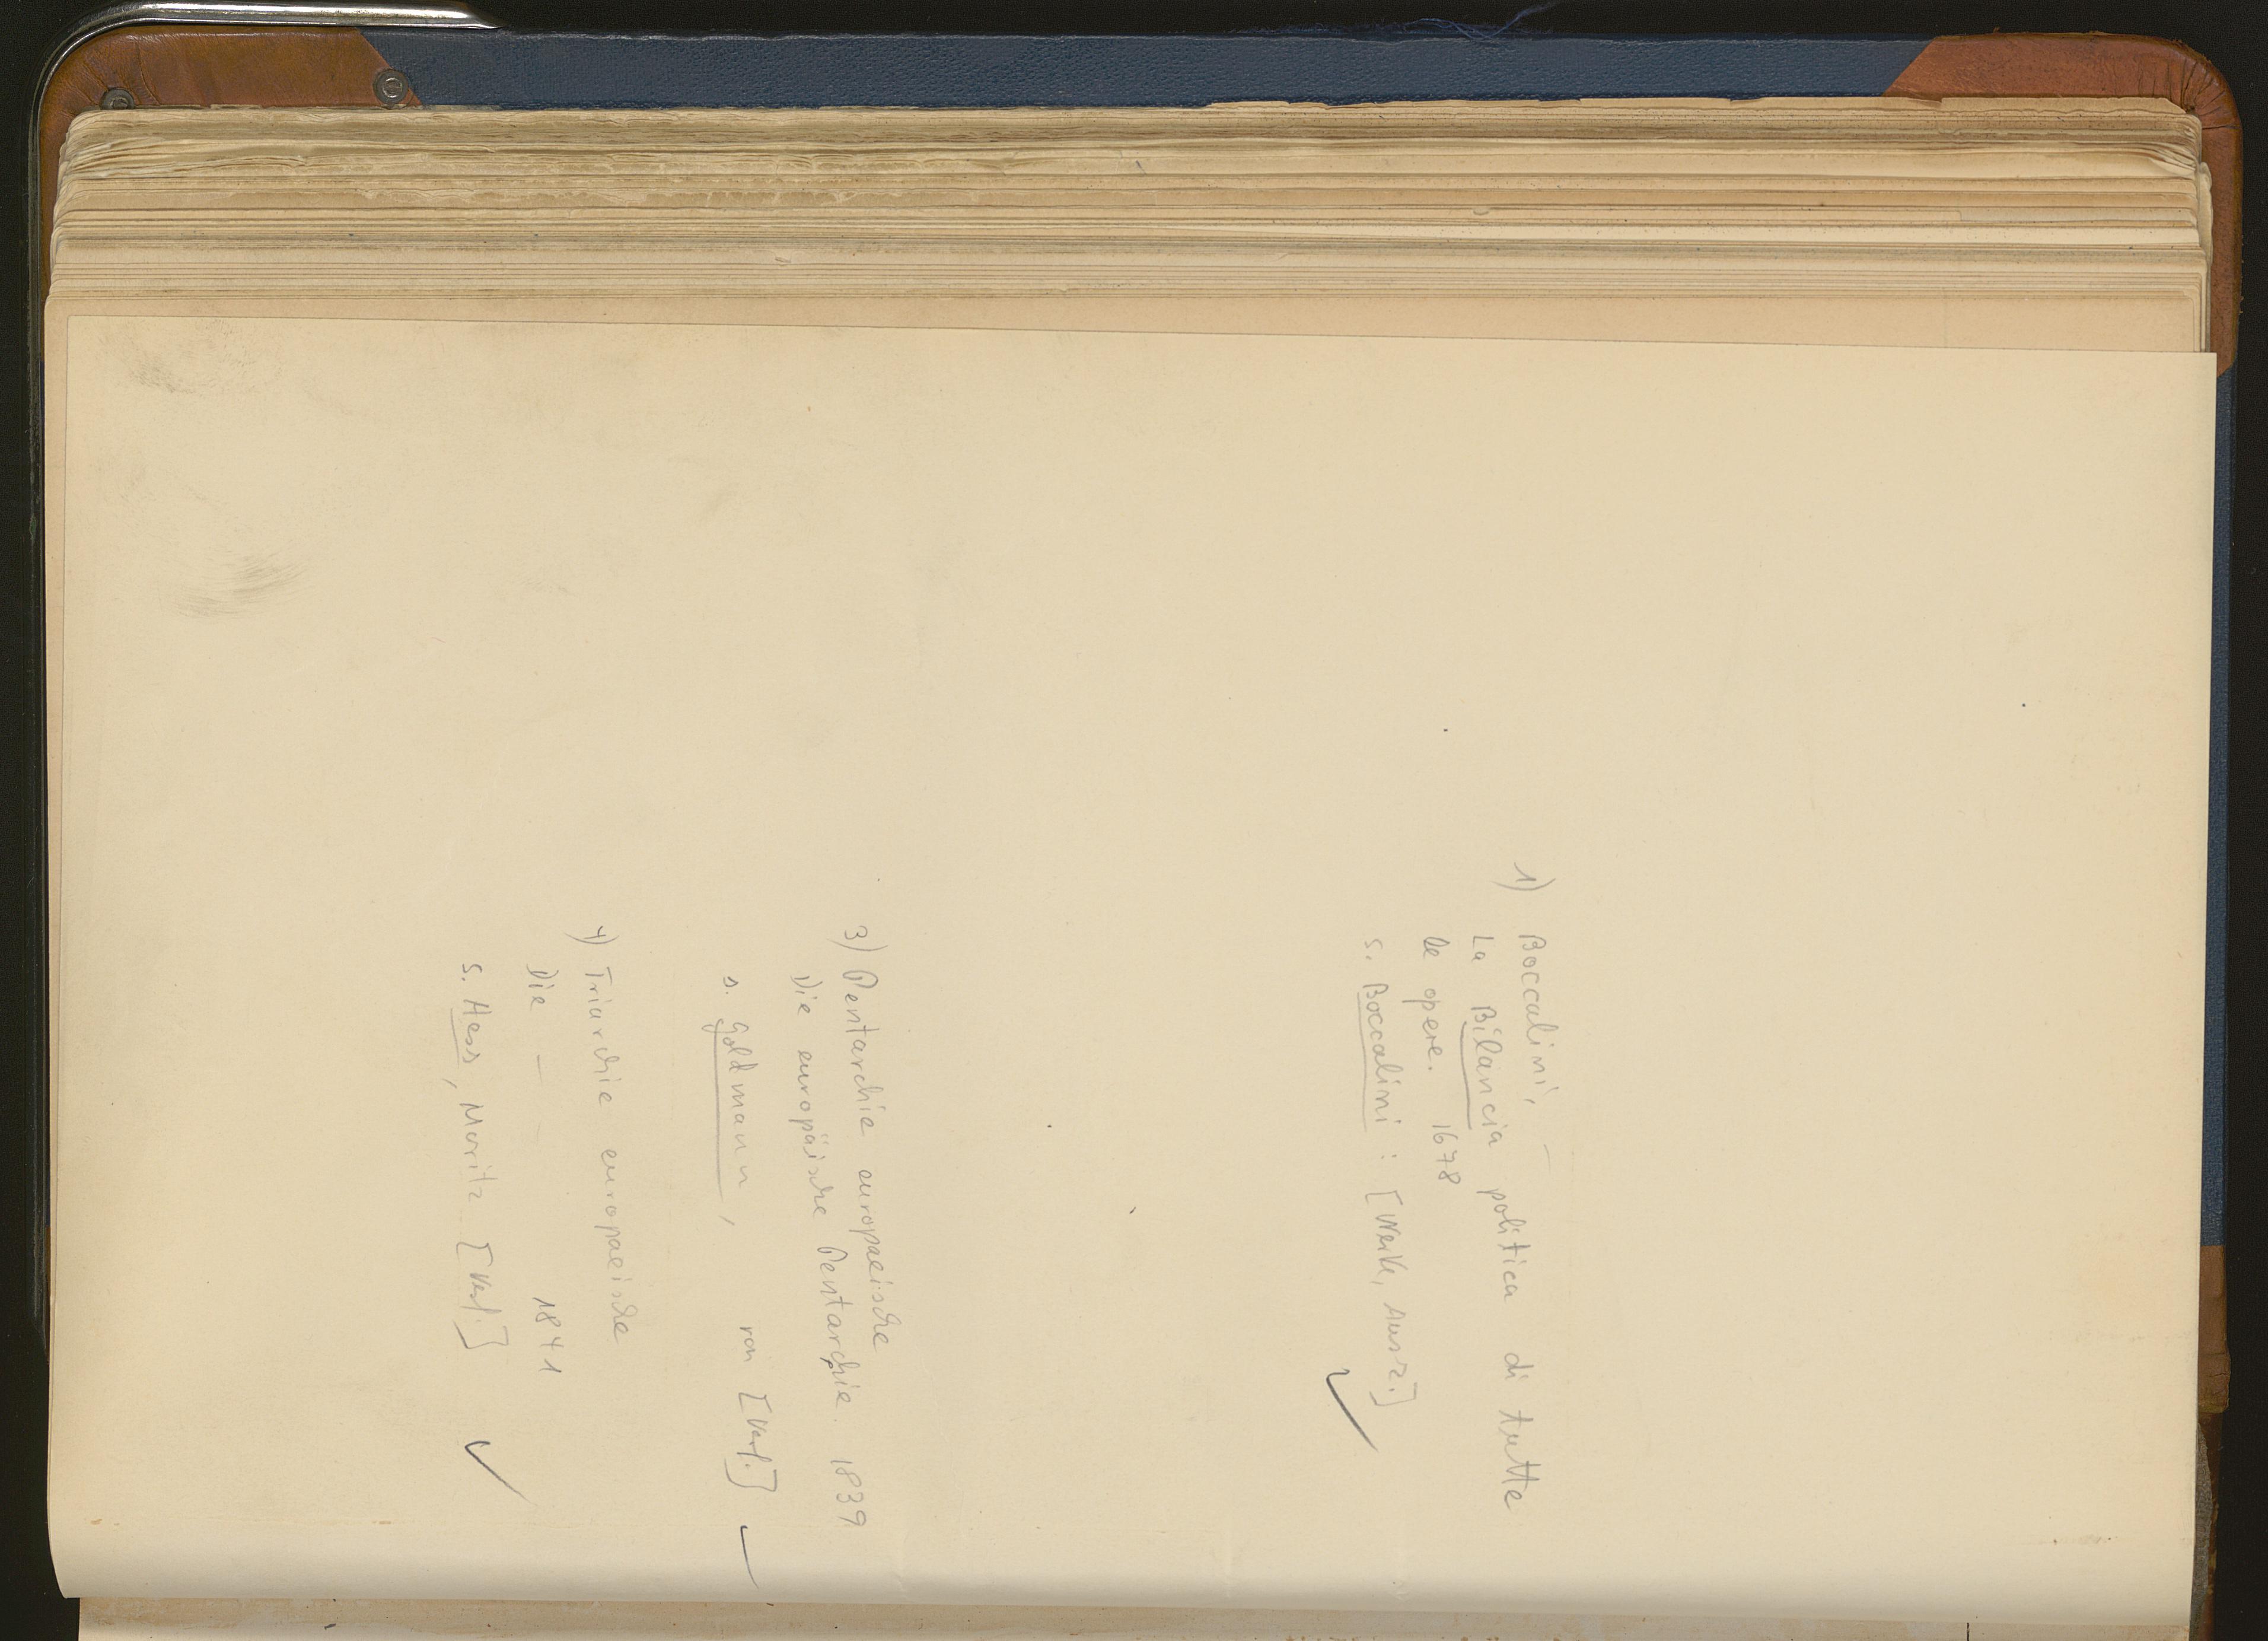 1) Boccalini, —
La Bilancia politica di tutte
le opere. 1678
s. Boccalini : [Werke, Ausz.]
3) Pentarchie europaeische
Die europäische Pentarchie. 1839
s. Goldmann, von [Verf.]
4) Triarchie europaeische
Die — — 1841
s. Hess, Moritz [Verf.]